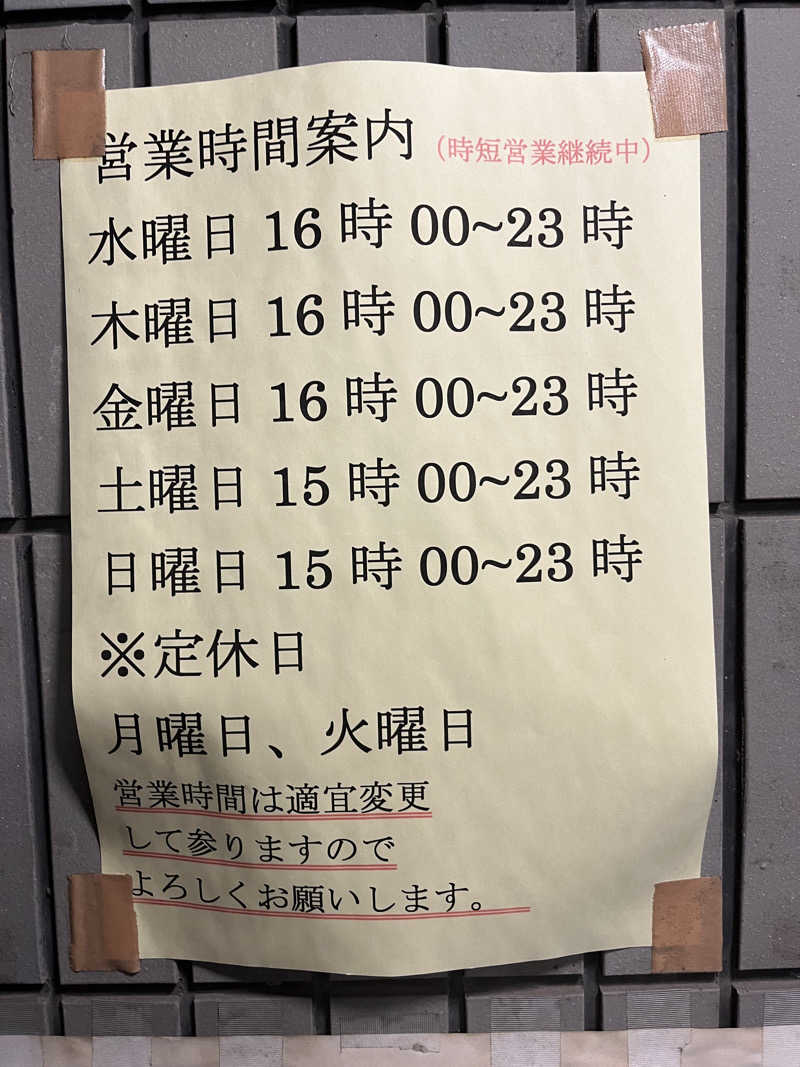 営業時間案内 (時短営業継続中)
水曜日 16 時 00~23 時
木曜日 16 時 00~23 時
金曜日 16 時 00~23 時
土曜日 15 時 00~23 時
日曜日 15 時 00~23 時
※定休日
月曜日、火曜日
営業時間は適宜変更
して参りますので
よろしくお願いします。